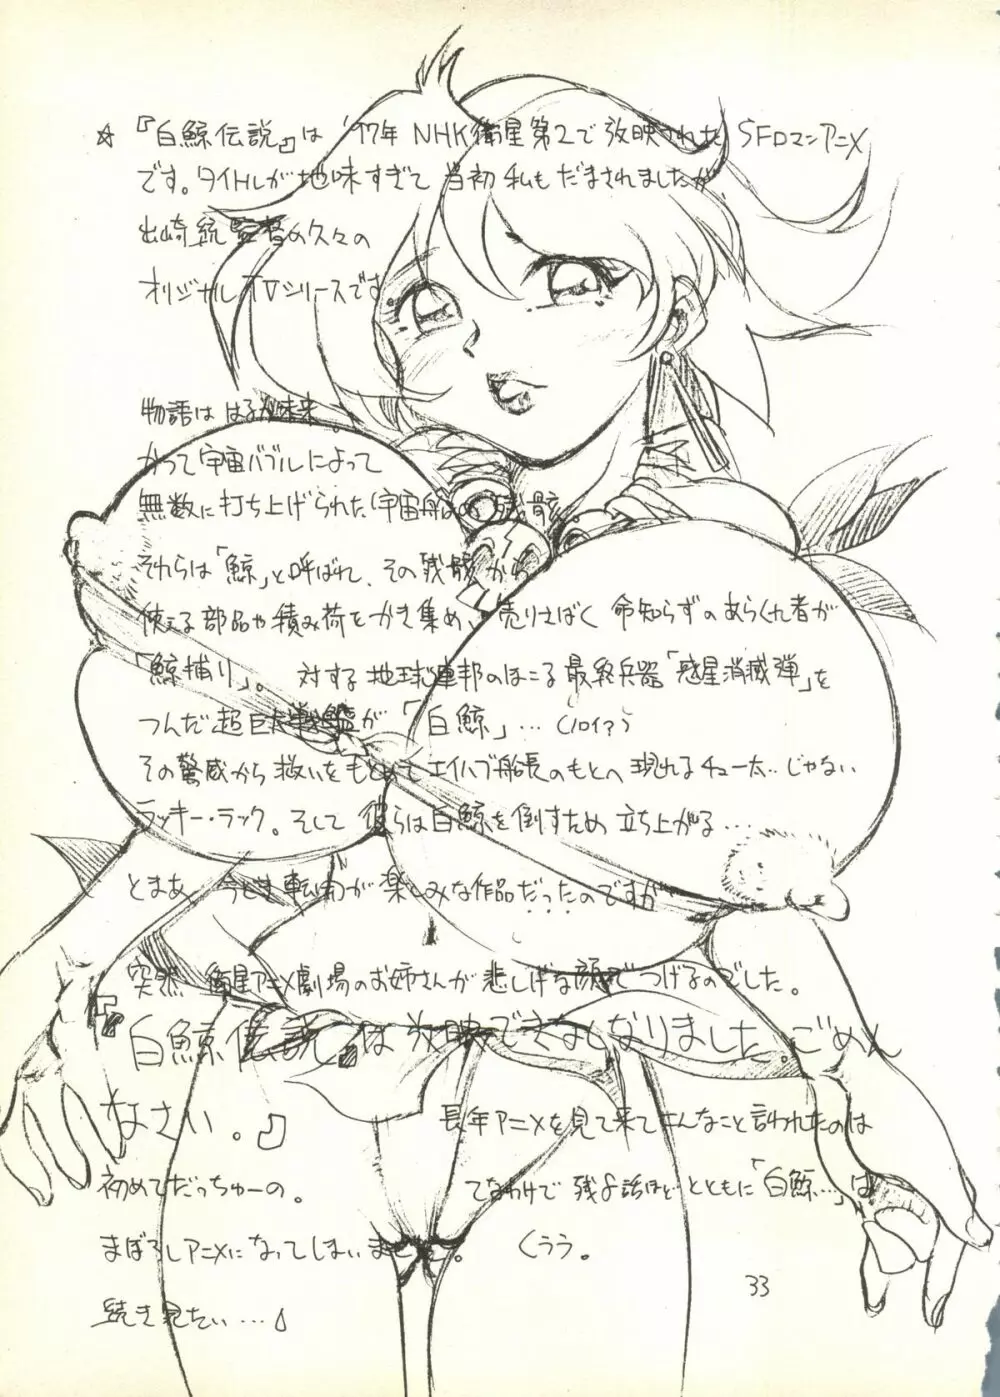 ☆『白鯨伝説』は '97年 NHK衛星第2で放映された SFロマンアニメ
です。タイトルが地味すぎて 当初 私も だまされましたが、
出崎統監督の久々の
オリジナルTVシリーズです
物語は はるか未来。
かつて宇宙バブルによって
無数に打ち上げられた宇宙船の残骸
それらは「鯨」と呼ばれ、その残骸から
使える部品や積み荷をかき集め、売りさばく 命知らずのあらくれ者が
「鯨捕り」。 対する 地球連邦のほこる 最終兵器「惑星消滅弾」を
つんだ超巨大戦艦が 「白鯨」…
その驚威から 救いをもとめて エイハブ船長のもとへ 現れる チュー太…じゃない
ラッキー・ラック。そして 彼らは白鯨を倒すため 立ち上がる…
とまあ、今どき 転がが 楽しみな作品だったのですが
突然 衛星アニメ劇場のお姉さんが 悲しげな顔で つげるのでした。
『白鯨伝説』は放映できなくなりました。ごめん
なさい。』 長年アニメを見て来てこんなこと言われたのは
初めてだっちゅーの。 てなわけで 残8話ほど とともに「白鯨…」は
まぼろしアニメになってしまいました。 くぅぅ。
続き見たい…
33